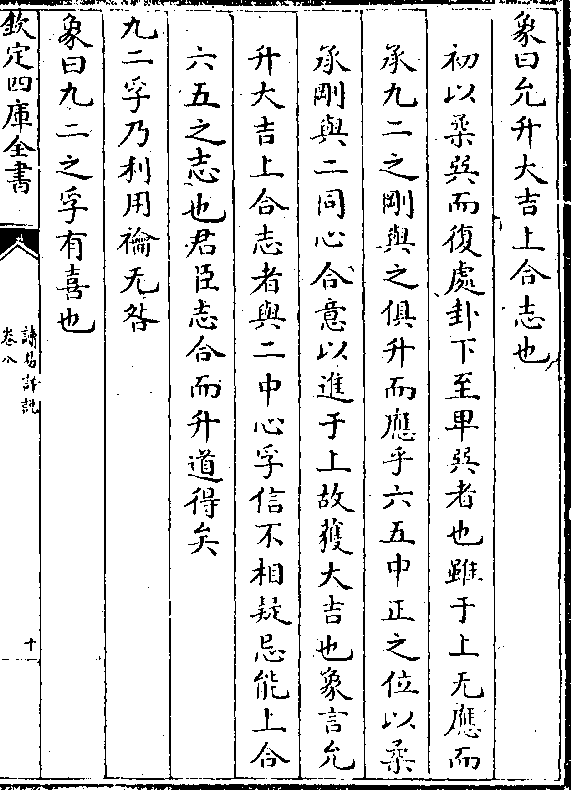 象曰允升大吉上合志也
初以柔巽而復處卦下至卑巽者也雖于上无應而
承九二之剛與之俱升而應乎六五中正之位以柔
承剛與二同心合意以進于上故獲大吉也象言允
升大吉上合志者與二中心孚信不相疑忌能上合
六五之志也君臣志合而升道得矣
九二孚乃利用禴无咎
象曰九二之孚有喜也
欽定四庫全書
讀易詳說
卷八
十